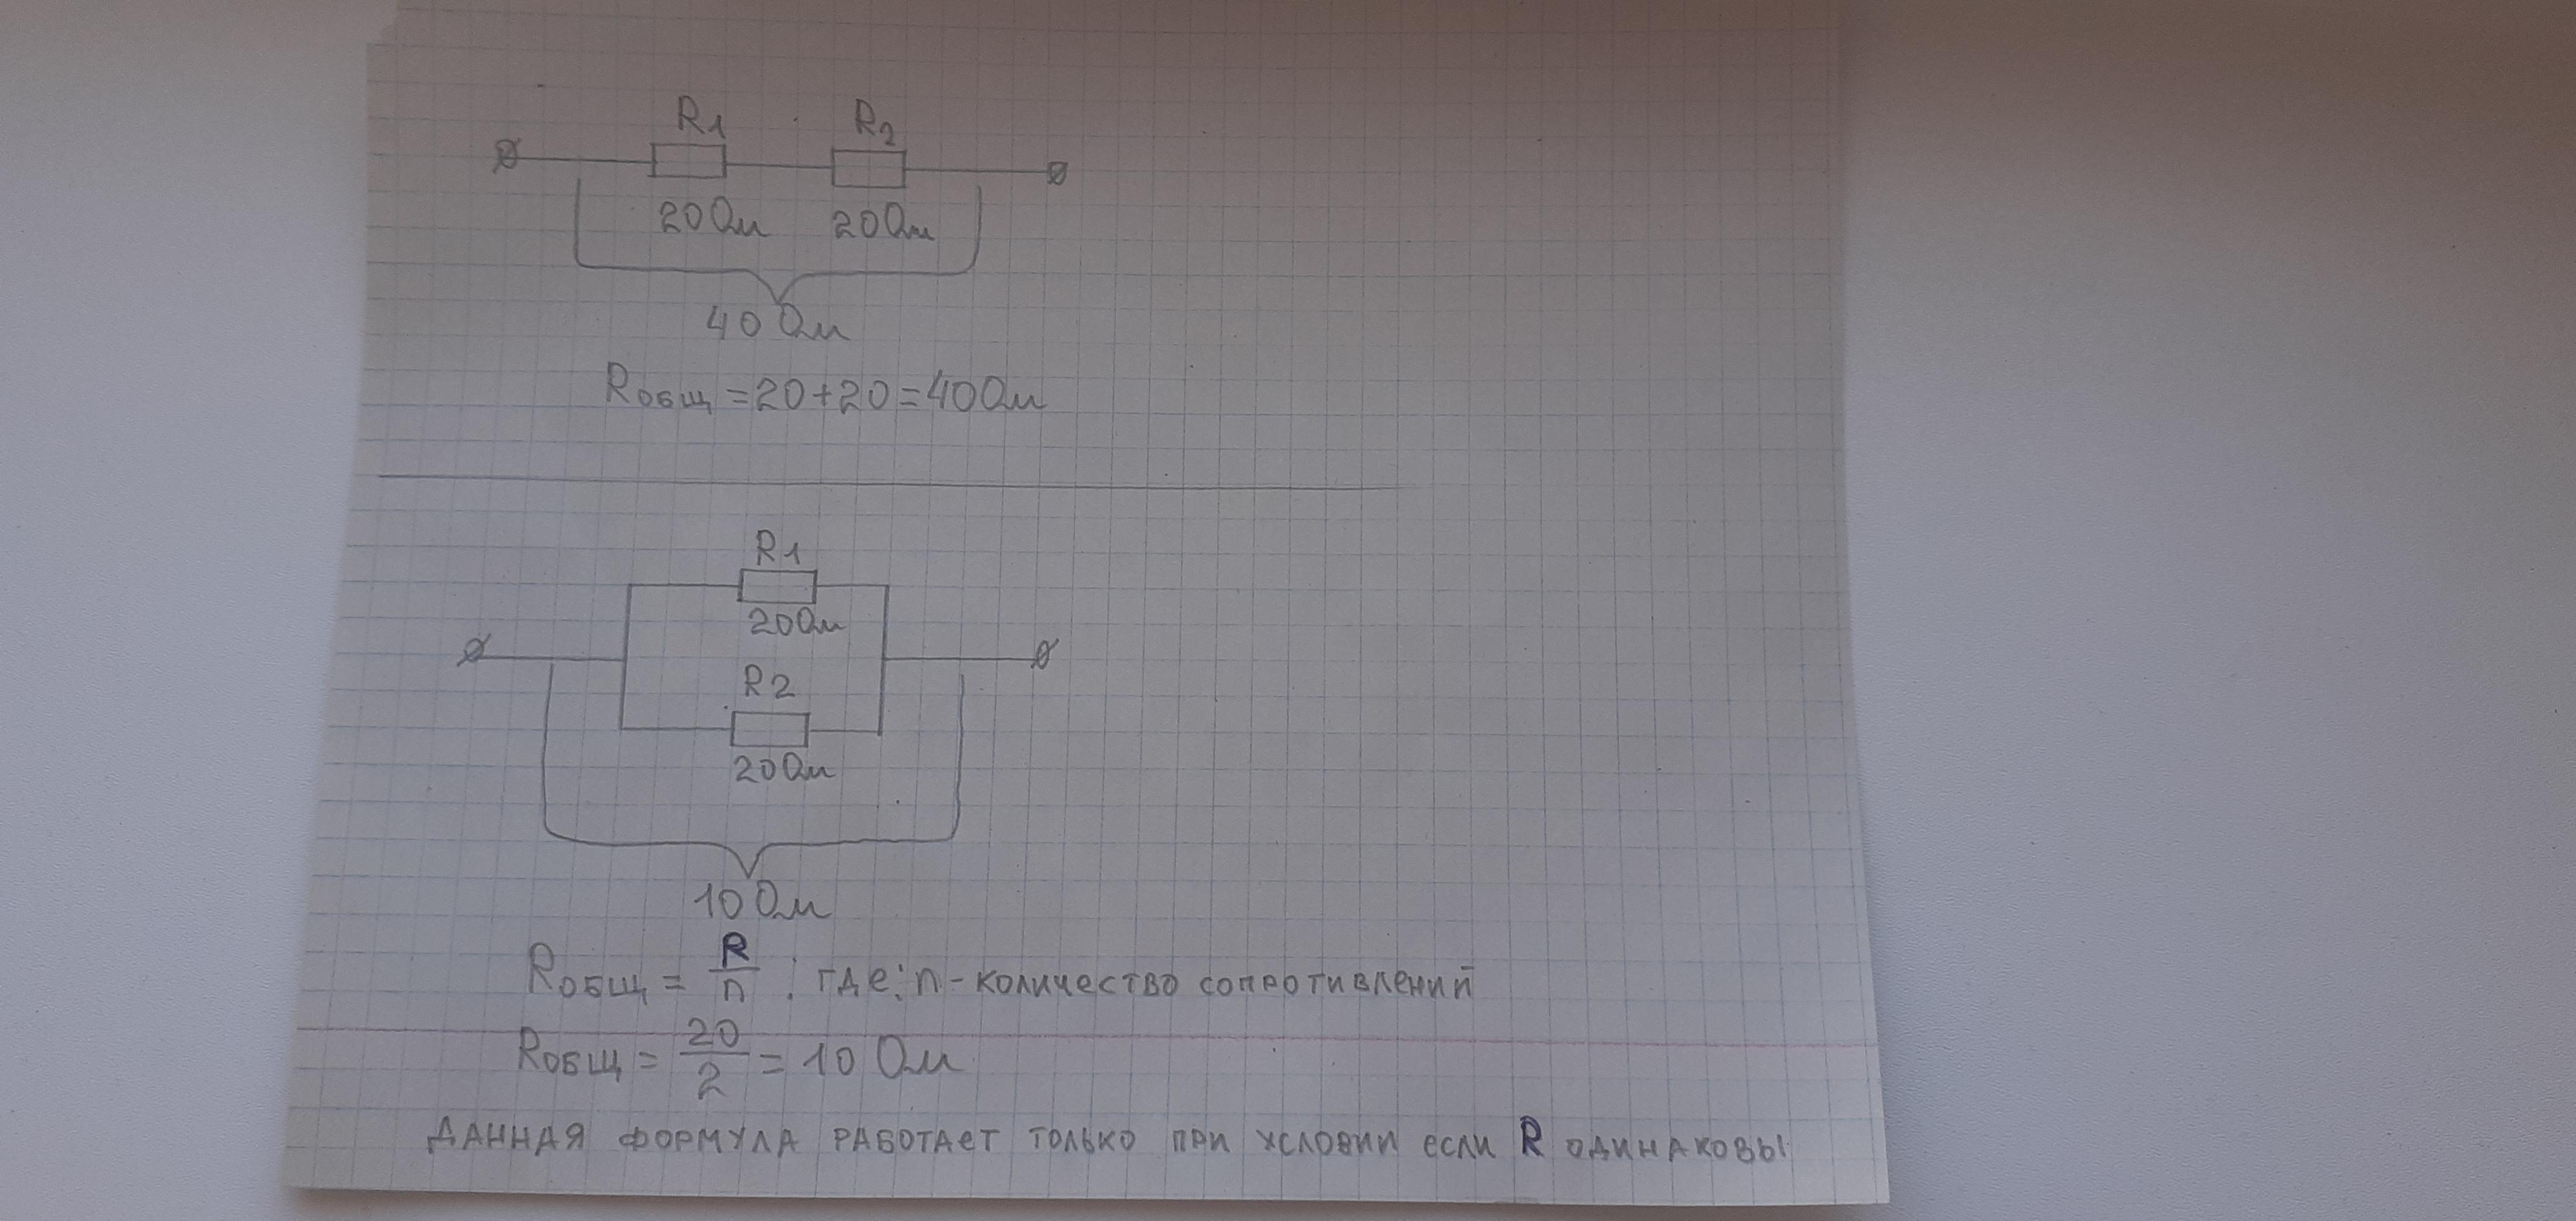 R1 R2
20 Ом 20 Ом
40 Ом
Rобщ = 20+20 = 40 Ом
R1
20 Ом
R2
20 Ом
10 Ом
Rобщ = R/n ; где: n - количество сопротивлений
Rобщ = 20/2 = 10 Ом
ДАННАЯ ФОРМУЛА РАБОТАЕТ ТОЛЬКО ПРИ УСЛОВИИ ЕСЛИ R ОДИНАКОВЫ